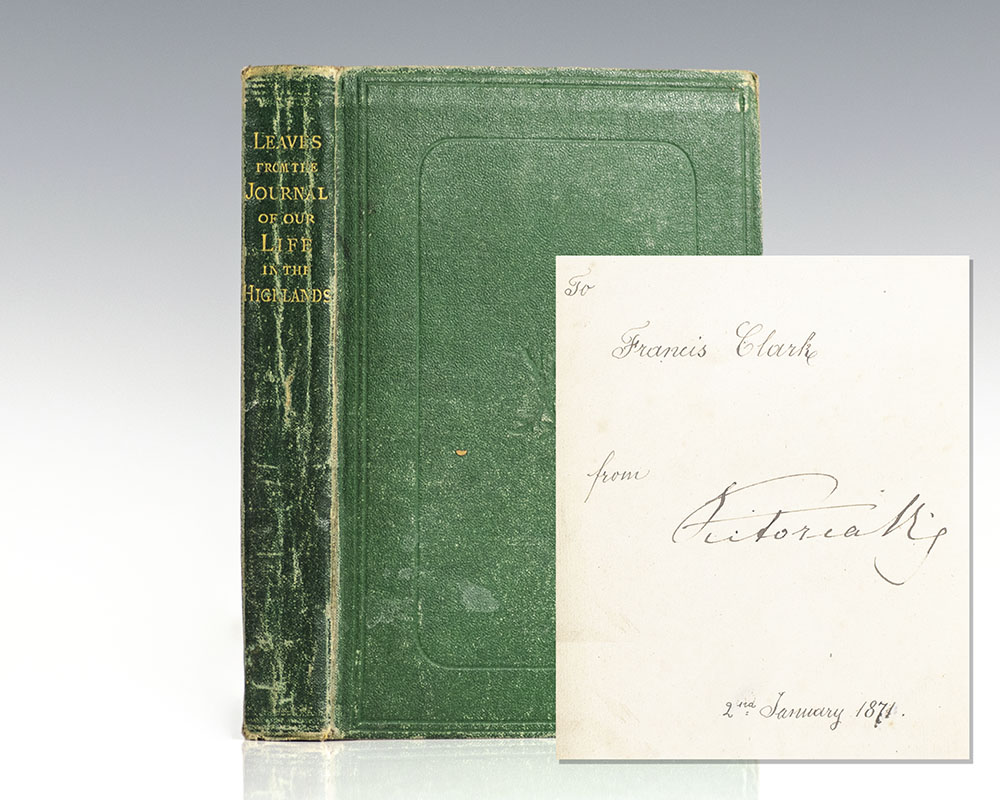 LEAVES
FROM THE
JOURNAL
OF OUR
LIFE
IN THE
HIGHLANDS
To
Francis Clark
from
Victoria R
2nd January 1871.